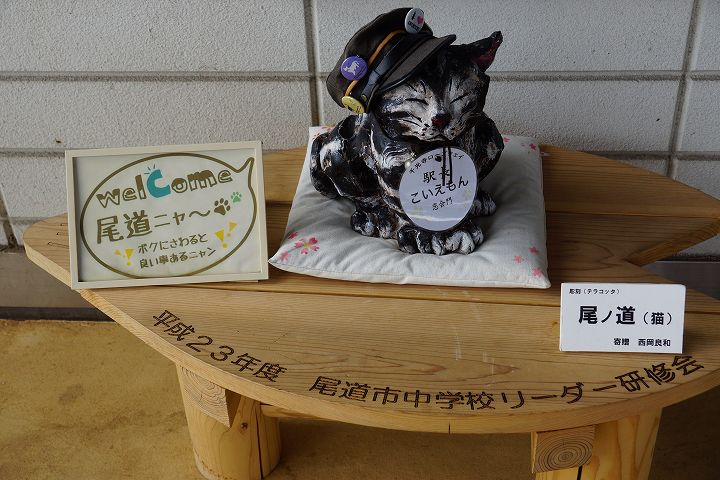 welcome
尾道ニャ〜
ボクにさわると
良い事あるニャン
駅長
こいえもん
彫刻（テラコッタ）
尾ノ道（猫）
寄贈　西岡良和
平成２３年度　尾道市中学校リーダー研修会